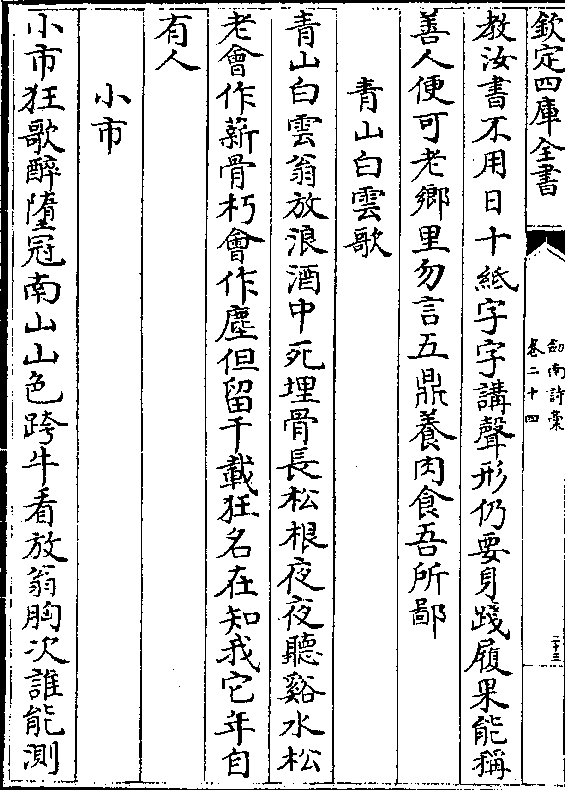 欽定四庫全書
劔南詩稾
卷二十四
二十三
教汝書不用日十紙字字講聲形仍要身踐履果能稱
善人便可老鄉里勿言五鼎養肉食吾所鄙
青山白雲歌
青山白雲翁放浪酒中死埋骨長松根夜夜聽谿水松
老會作薪骨朽會作塵但留千載狂名在知我它年自
有人
小市
小市狂歌醉墮冠南山山色跨牛看放翁胸次誰能測